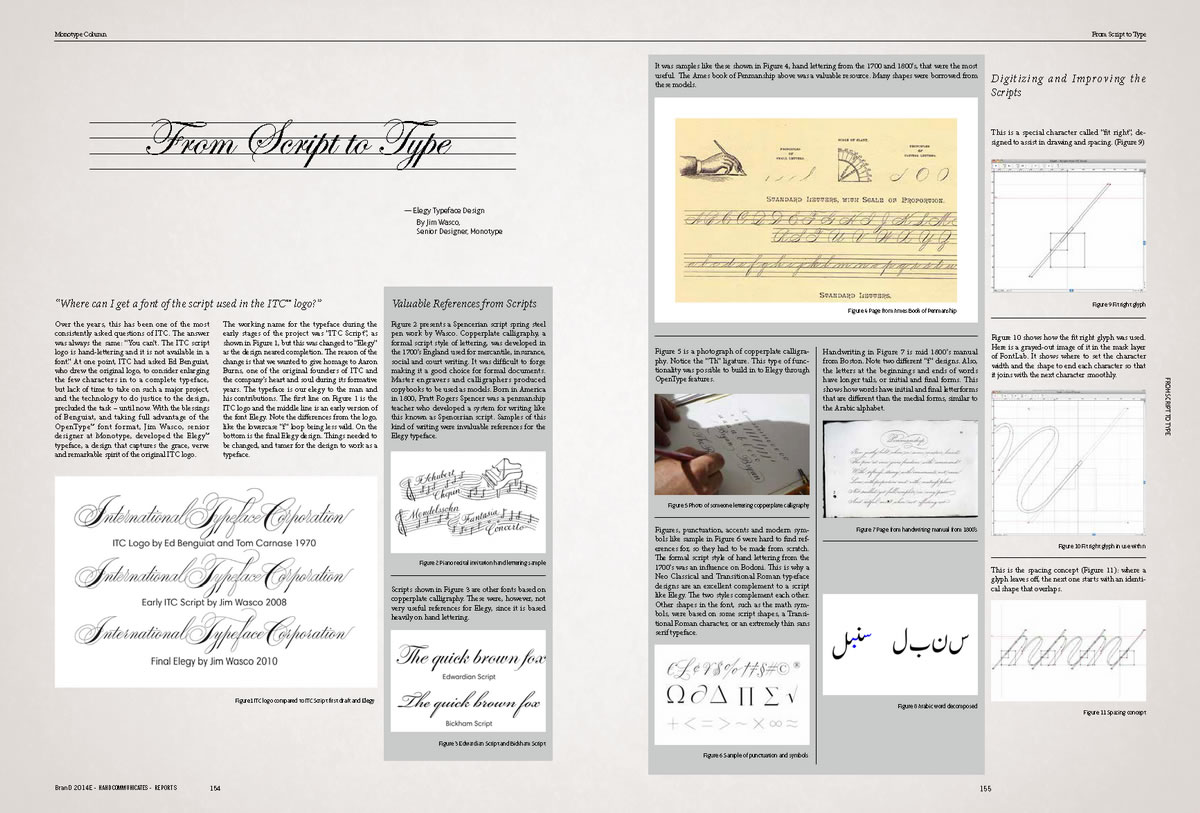 Monotype Column
From Script to Type
From Script to Type
— Elegy Typeface Design
By Jim Wasco,
Senior Designer, Monotype
"Where can I get a font of the script used in the ITC™ logo?"
Over the years, this has been one of the most
consistently asked questions of ITC. The answer
was always the same: "You can't. The ITC script
logo is hand-lettering and it is not available in a
font." At one point, ITC had asked Ed Benguiat,
who drew the original logo, to consider enlarging
the few characters in to a complete typeface,
but lack of time to take on such a major project,
and the technology to do justice to the design,
precluded the task – until now. With the blessings
of Benguiat, and taking full advantage of the
OpenType™ font format, Jim Wasco, senior
designer at Monotype, developed the Elegy™
typeface, a design that captures the grace, verve
and remarkable spirit of the original ITC logo.
The working name for the typeface during the
early stages of the project was "ITC Script", as
shown in Figure 1, but this was changed to "Elegy"
as the design neared completion. The reason of the
change is that we wanted to give homage to Aaron
Burns, one of the original founders of ITC and
the company's heart and soul during its formative
years. The typeface is our elegy to the man and
his contributions. The first line on Figure 1 is the
ITC logo and the middle line is an early version of
the font Elegy. Note the differences from the logo,
like the lowercase "f" loop being less wild. On the
bottom is the final Elegy design. Things needed to
be changed, and tamer for the design to work as a
typeface.
International Typeface Corporation
ITC Logo by Ed Benguiat and Tom Carnase 1970
International Typeface Corporation
Early ITC Script by Jim Wasco 2008
International Typeface Corporation
Final Elegy by Jim Wasco 2010
Figure 1 ITC logo compared to ITC Script first draft and Elegy
Valuable References from Scripts
Figure 2 presents a Spencerian script spring steel
pen work by Wasco. Copperplate calligraphy, a
formal script style of lettering, was developed in
the 1700's England used for mercantile, insurance,
social and court writing. It was difficult to forge
making it a good choice for formal documents.
Master engravers and calligraphers produced
copybooks to be used as models. Born in America
in 1800, Pratt Rogers Spencer was a penmanship
teacher who developed a system for writing like
this known as Spencerian script. Samples of this
kind of writing were invaluable references for the
Elegy typeface.
F. Schubert
Chopin
Mendelssohn
Fantasia
Concerto
Figure 2 Piano recital invitation hand lettering sample
Scripts shown in Figure 3 are other fonts based on
copperplate calligraphy. These were, however, not
very useful references for Elegy, since it is based
heavily on hand lettering.
The quick brown fox
Edwardian Script
The quick brown fox
Bickham Script
Figure 3 Edwardian Script and Bickham Script
BranD 2014E - HAND COMMUNICATES - REPORTS
154
It was samples like these shown in Figure 4, hand lettering from the 1700 and 1800's, that were the most
useful. The Ames book of Penmanship above was a valuable resource. Many shapes were borrowed from
these models.
PRINCIPLES
OF
SMALL LETTERS.
SCALE OF SLANT.
PRINCIPLES
OF
CAPITAL LETTERS.
STANDARD LETTERS, WITH SCALE OR PROPORTION.
STANDARD LETTERS.
Figure 4 Page from Ames Book of Penmanship
Figure 5 is a photograph of copperplate calligra-
phy. Notice the "Th" ligature. This type of func-
tionality was possible to build in to Elegy through
OpenType features.
Figure 5 Photo of someone lettering copperplate calligraphy
Figures, punctuation, accents and modern sym-
bols like sample in Figure 6 were hard to find ref-
erences for, so they had to be made from scratch.
The formal script style of hand lettering from the
1700's was an influence on Bodoni. This is why a
Neo Classical and Transitional Roman typeface
designs are an excellent complement to a script
like Elegy. The two styles complement each other.
Other shapes in the font, such as the math sym-
bols, were based on some script shapes, a Transi-
tional Roman character, or an extremely thin sans
serif typeface.
Ω ∂ Δ ∏ Σ √
+ < = > ~ × ∞ ≈
Figure 6 Sample of punctuation and symbols
Handwriting in Figure 7 is mid 1800's manual
from Boston. Note two different "f" designs. Also,
the letters at the beginnings and ends of words
have longer tails, or initial and final forms. This
shows how words have initial and final letterforms
that are different than the medial forms, similar to
the Arabic alphabet.
Penmanship
Figure 7 Page from handwriting manual from 1800's
سنبل س ن ب ل
Figure 8 Arabic word decomposed
Digitizing and Improving the
Scripts
This is a special character called "fit right", de-
signed to assist in drawing and spacing. (Figure 9)
Figure 9 Fit right glyph
Figure 10 shows how the fit right glyph was used.
Here is a grayed-out image of it in the mask layer
of FontLab. It shows where to set the character
width and the shape to end each character so that
it joins with the next character smoothly.
Figure 10 Fit right glyph in use with n
This is the spacing concept (Figure 11): where a
glyph leaves off, the next one starts with an identi-
cal shape that overlaps.
Figure 11 Spacing concept
FROM SCRIPT TO TYPE
155